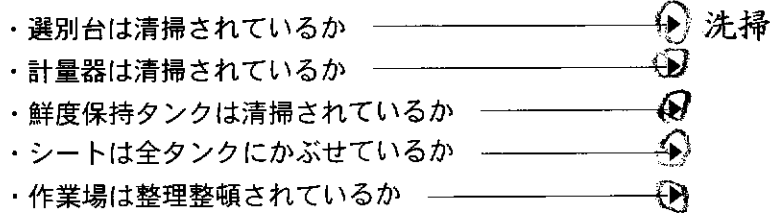 ・選別台は清掃されているか ▶ 洗掃
・計量器は清掃されているか ▶
・鮮度保持タンクは清掃されているか ▶
・シートは全タンクにかぶせているか ▶
・作業場は整理整頓されているか ▶